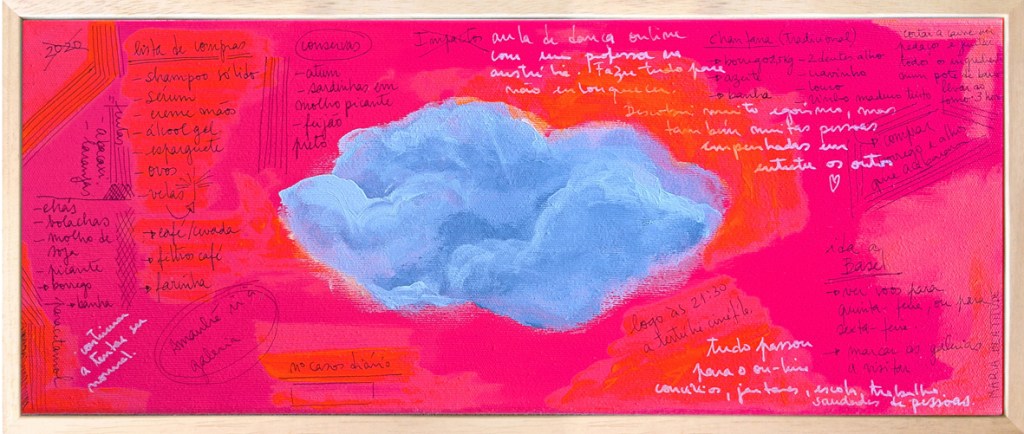 2020
lista de compras
- shampoo sólido
- sérum
- creme mãos
- álcool gel
- esparguete
- ovos
- velas
→ café/cevada
→ filtros café
→ farinha
- frutas
- abacaxi
- laranjas
- chás
- bolachas
- molho de
soja
- picante
→ borrego
→ banha
paracetamol
continuar
a tentar ser
normal.
amanhã ir à
galeria
nº casos diário
conservas
- atum
- sardinhas em
molho picante
- feijão
preto
Impostos
aula de dança online
com um professor em
austrília. Fazer tudo para
não enlouquecer.
Descobri muito egoísmo, mas
também muitas pessoas
empenhadas em
entreter os outros
♡
chanfana (tradicional)
→ borrego 2,5kg
→ azeite
→ banha
- 2 dentes alho
- cravinho
- louro
- vinho maduro tinto
cortar a carne em
pedaços e
todos o
num pote de barro
levar ao
forno 3 horas
→ comprar
borrego e alho
que acabaram
logo às 21:30
a tertúlia cinéfila.
ida a
Basel
→ ver voos para
quinta-feira, ou para
sexta-feira
→ marcar as galerias
a visitar
tudo passou
para o on-line
concertos, jantares, escola, trabalho.
saudades de pessoas.